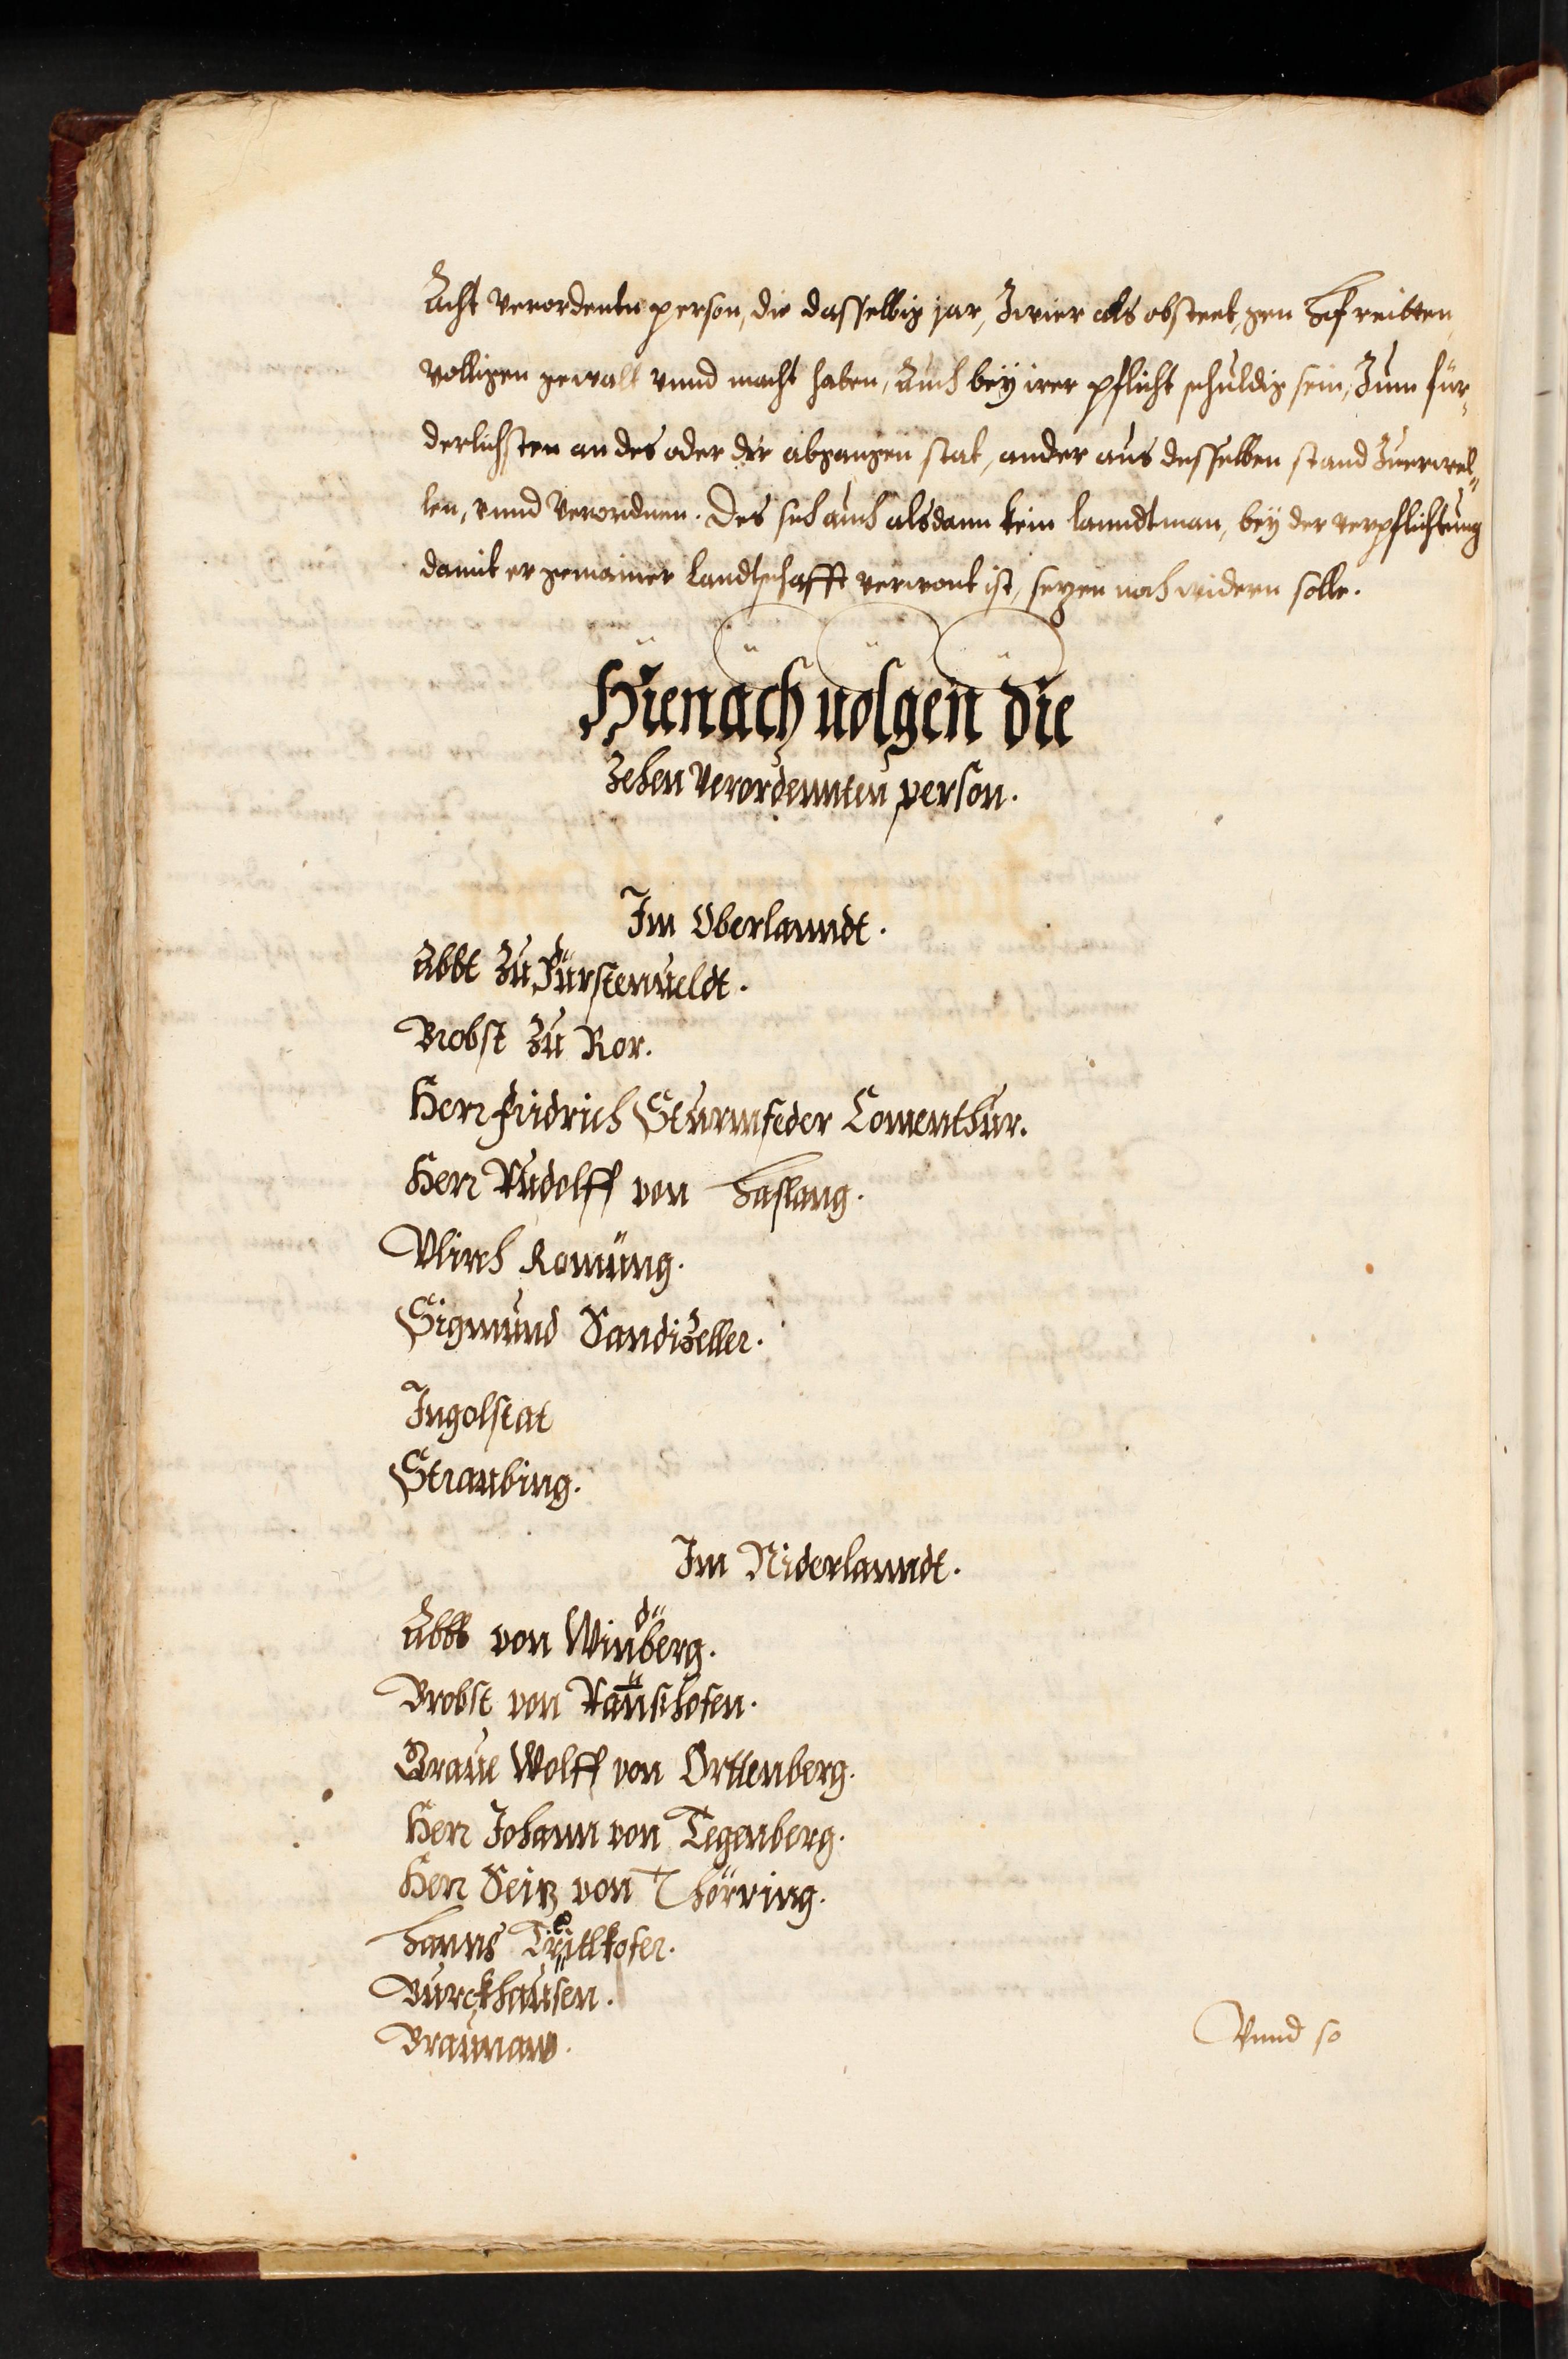 Acht verordentn person, die dasselbig jar, Zwier als obsteet, gen Hof reitten,
volligen gewalt vnnd macht haben, Auch bey irer pflicht schuldig sein, Zum für„
derlichsten an des oder der abgangen stat, ander aus desselben stand Zuerwel„
len, vnnd verordnen. Des sich auch alsdann kein lanndtman, bey der verpflichtung
damit er gemainer landtschafft verwont ist, setzen noch widern solle.
Hienach uolgen die
Zehen verordennten person.
Im Oberlanndt.
Abbt Zu Fürstenueldt.
Brobst Zu Ror.
Herr fridrich Sturmfeder Comenthur.
Herr Rudolff von Haslang.
Vlirch Romüng.
Sigmund Sandizeller.
Ingolstat
Straubing.
Im Niderlanndt.
Abbt von Winberg.
Brobst von Ranshofen.
Graue Wolff von Orttenberg.
Herr Johann von Tegenberg.
Herr Seitz von Thörring.
Hanns
Burckhausen.
Braunaw.
Vnnd so